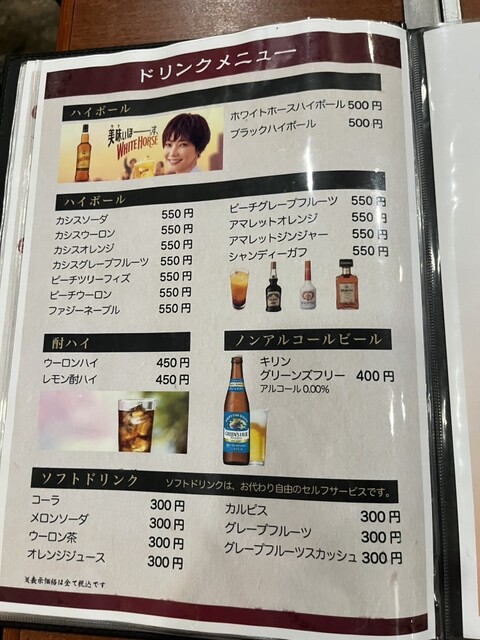 ドリンクメニュー
ハイボール
美味いほーーっす。
WHITE HORSE
ホワイトホースハイボール 500円
ブラックハイボール 500円
ハイボール
カシスソーダ 550円
カシスウーロン 550円
カシスオレンジ 550円
カシスグレープフルーツ 550円
ピーチツリーフィズ 550円
ピーチウーロン 550円
ファジーネーブル 550円
ピーチグレープフルーツ 550円
アマレットオレンジ 550円
アマレットジンジャー 550円
シャンディーガフ 550円
酎ハイ
ウーロンハイ 450円
レモン酎ハイ 450円
ノンアルコールビール
キリン
グリーンズフリー 400円
アルコール 0.00%
ソフトドリンク ソフトドリンクは、お代わり自由のセルフサービスです。
コーラ 300円
メロンソーダ 300円
ウーロン茶 300円
オレンジジュース 300円
カルピス 300円
グレープフルーツ 300円
グレープフルーツスカッシュ 300円
※表示価格は全て税込です